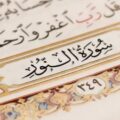 وَقُل رَّبِّ ٱغْفِرْ وَٱرْحَمْ
سُورَةُ النُّورِ
٣٤٩